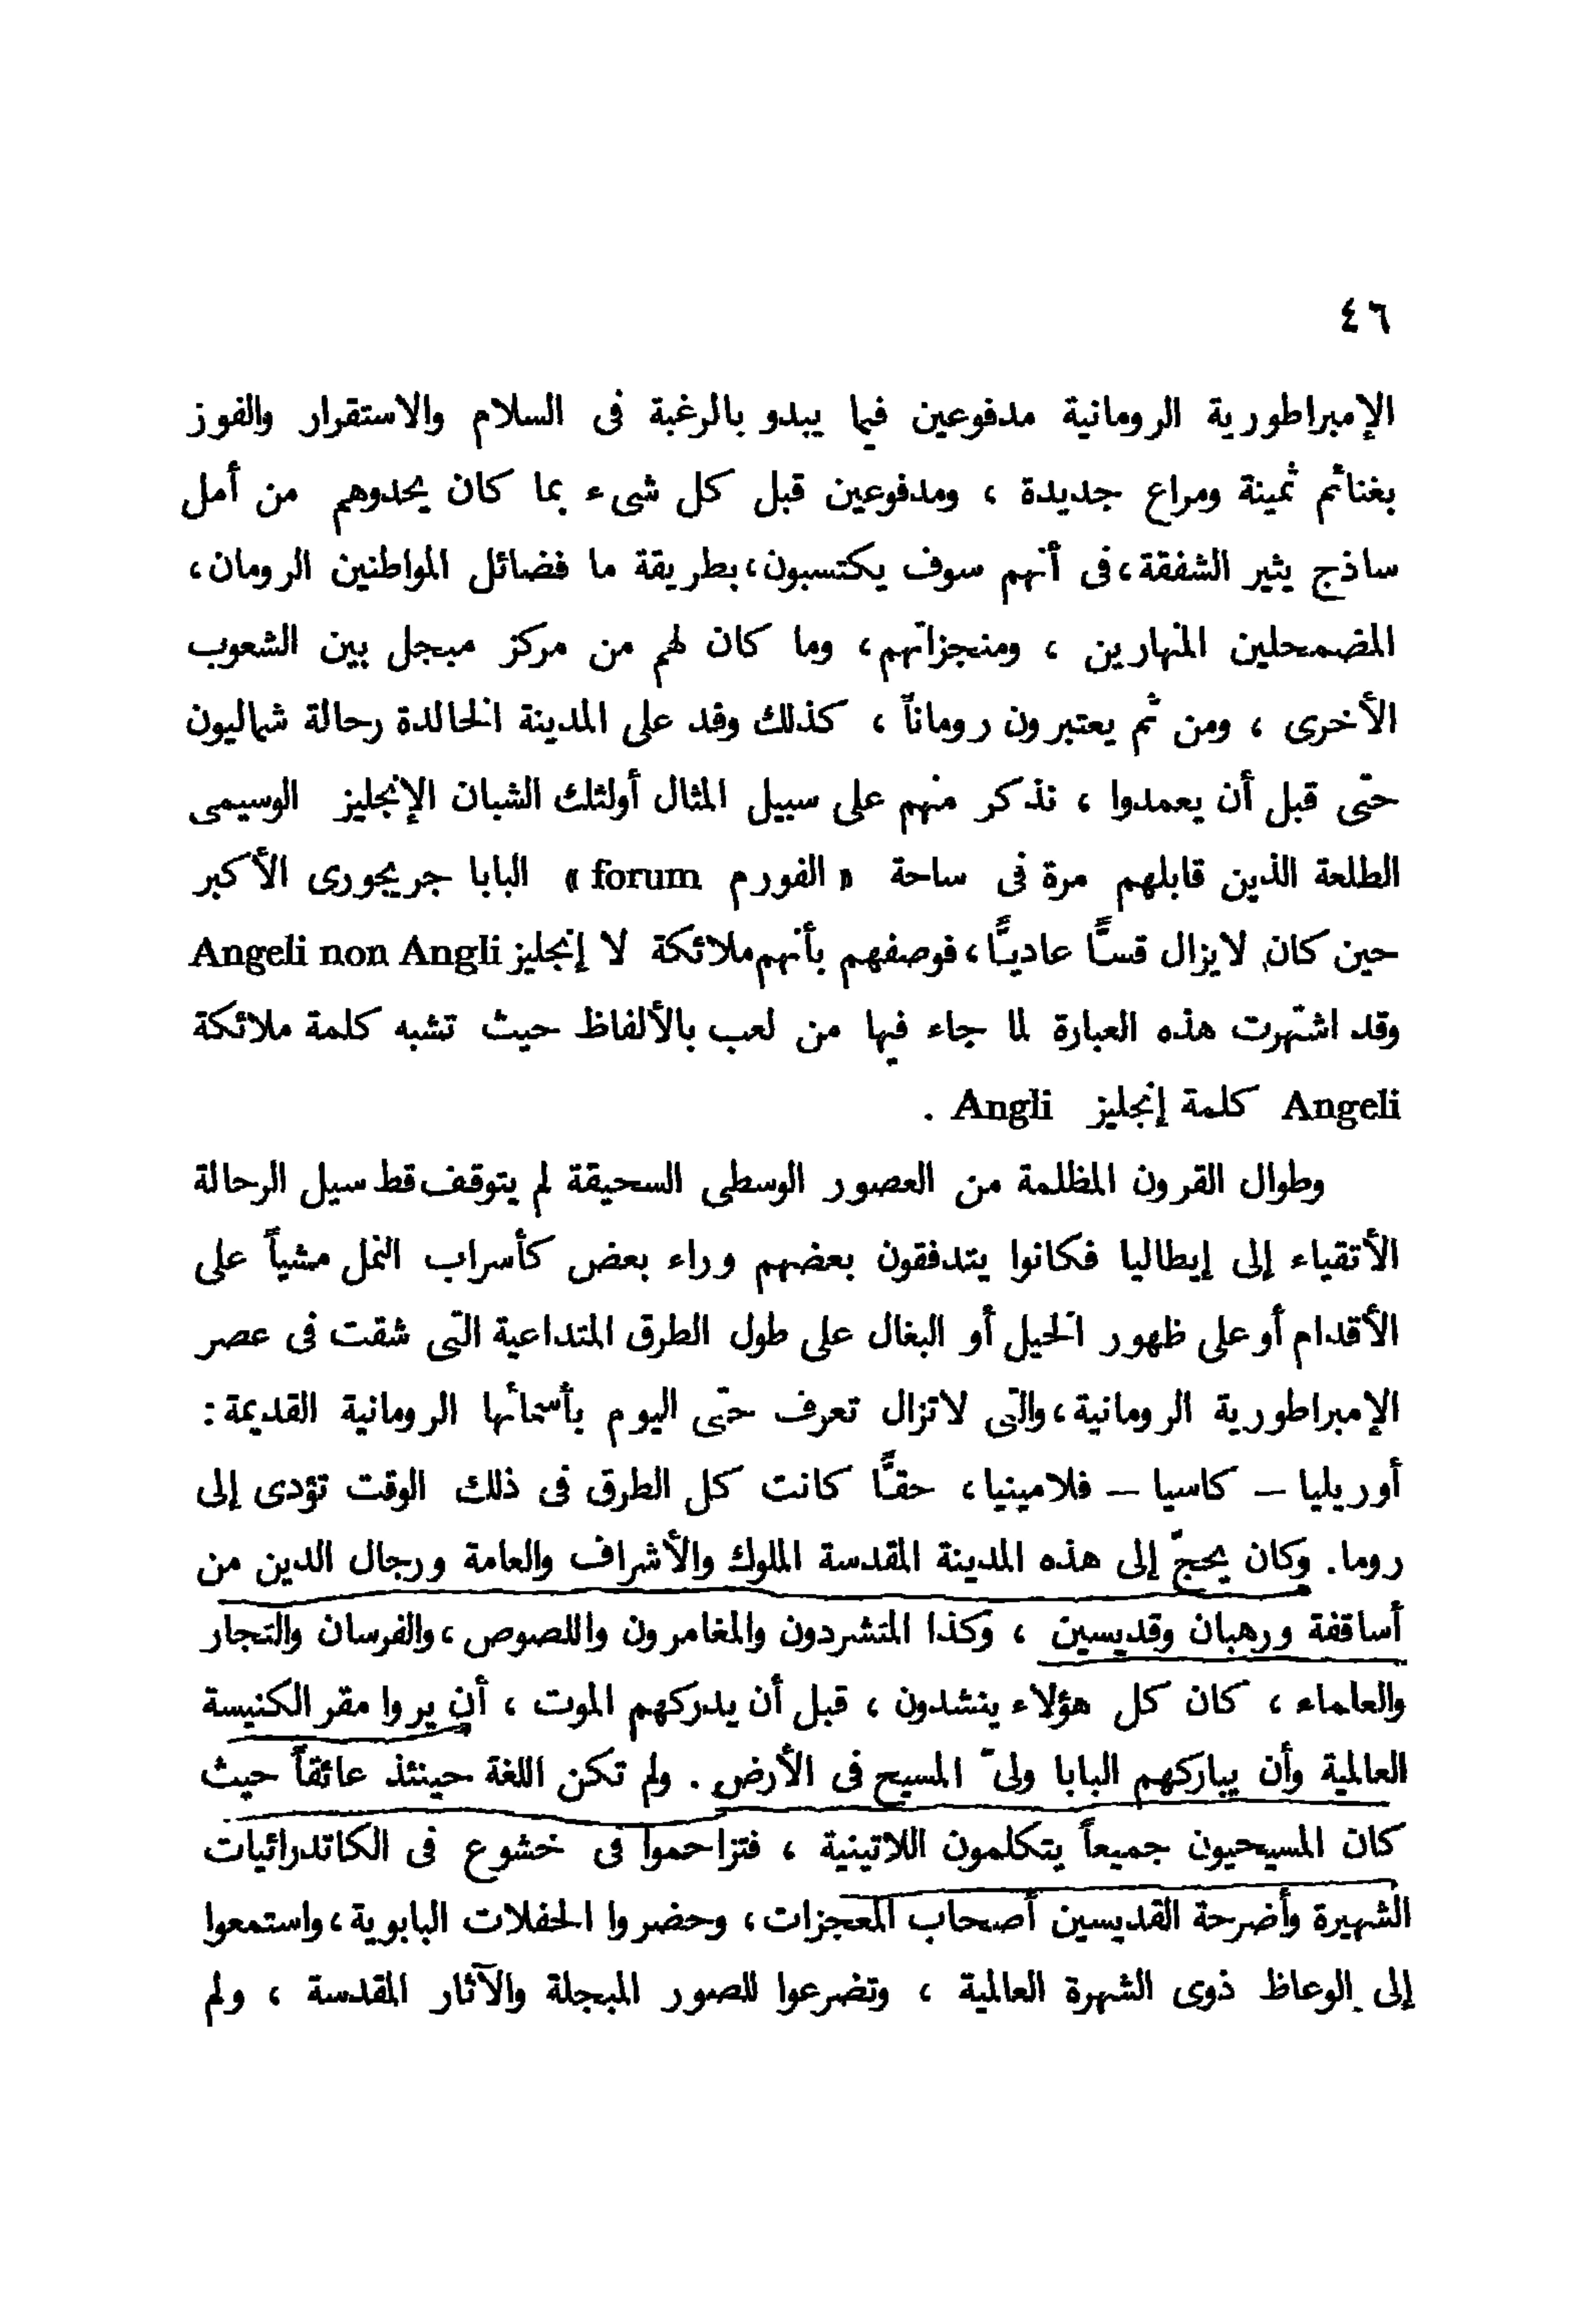 ٤٦
الإمبراطورية الرومانية مدفوعين فيما يبدو بالرغبة فى السلام والاستقرار والفوز
بغنائم ثمينة ومراع جديدة ، ومدفوعين قبل كل شىء بما كان يحدوهم من أمل
ساذج يثير الشفقة، فى أنهم سوف يكتسبون، بطريقة ما فضائل المواطنين الرومان،
المضمحلين المنهارين ، ومنجزاتهم، وما كان لهم من مركز مبجل بين الشعوب
الأخرى ، ومن ثم يعتبرون روماناً ، كذلك وفد على المدينة الخالدة رحالة شماليون
حتى قبل أن يعمدوا ، نذكر منهم على سبيل المثال أولئك الشبان الإنجليز الوسيمى
الطلعة الذين قابلهم مرة فى ساحة « الفورم forum » البابا جريجورى الأكبر
حين كان لايزال قسًّا عاديًّا، فوصفهم بأنهم ملائكة لا إنجليز Angeli non Angli
وقد اشتهرت هذه العبارة لما جاء فيها من لعب بالألفاظ حيث تشبه كلمة ملائكة
Angeli كلمة إنجليز Angli .
وطوال القرون المظلمة من العصور الوسطى السحيقة لم يتوقف قط سيل الرحالة
الأتقياء إلى إيطاليا فكانوا يتدفقون بعضهم وراء بعض كأسراب النمل مشياً على
الأقدام أو على ظهور الخيل أو البغال على طول الطرق المتداعية التى شقت فى عصر
الإمبراطورية الرومانية، والتى لاتزال تعرف حتى اليوم بأسمائها الرومانية القديمة :
أوريليا – كاسيا – فلامينيا، حقًّا كانت كل الطرق فى ذلك الوقت تؤدى إلى
روما. وكان يحجّ إلى هذه المدينة المقدسة الملوك والأشراف والعامة ورجال الدين من
أساقفة ورهبان وقديسين ، وكذا المتشردون والمغامرون واللصوص، والفرسان والتجار
والعلماء ، كان كل هؤلاء ينشدون ، قبل أن يدركهم الموت ، أن يروا مقر الكنيسة
العالمية وأن يباركهم البابا ولىّ المسيح فى الأرض. ولم تكن اللغة حينئذ عائقاً حيث
كان المسيحيون جميعاً يتكلمون اللاتينية ، فتزاحموا فى خشوع فى الكاتدرائيات
الشهيرة وأضرحة القديسين أصحاب المعجزات، وحضروا الحفلات البابوية، واستمعوا
إلى الوعاظ ذوى الشهرة العالمية ، وتضرعوا للصور المبجلة والآثار المقدسة ، ولم